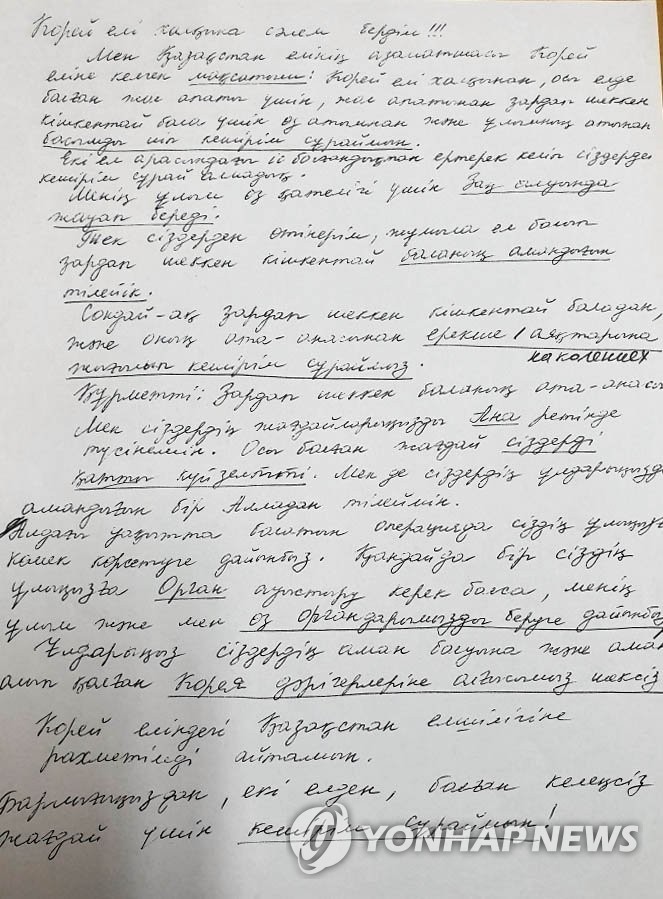 Корей елі халқына сәлем бердім!!!
Мен Қазақстан елінің азаматшасы Корей
еліне келген мақсатым: Корей елі халқынан, осы елде
болған жол апаты үшін, жол апатынан зардап шеккен
кішкентай бала үшін өз атымнан және ұлымның атынан
басымды иіп кешірім сұраймын.
Екі ел арасындағы іс болғандықтан ертерек келіп сіздерден
кешірім сұрай алмадық.
Менің ұлым өз қателігі үшін Заң алдында
жауап береді.
Тек сіздерден өтінерім, жұмыла ел болып
зардап шеккен кішкентай баланың амандығын
тілейік.
Сондай-ақ зардап шеккен кішкентай баладан,
және оның ата-анасынан ерекше / аяқтарына
жығылып кешірім сұраймыз. на коленнех
Құрметті: Зардап шеккен баланың ата-анасы
Мен сіздердің жағдайларыңызды Ана ретінде
түсінемін. Осы болған жағдай сіздерді
қатты күйзелтті. Мен де сіздердің ұлдарыңызды
амандығын бір Алладан тілеймін.
Алдағы уақытта болатын операцияда сіздің ұлыңызға
көмек көрсетуге дайынбыз. Қандайда бір сіздің
ұлыңызға Орган ауыстыру керек болса, менің
ұлым және мен өз органдарымызды беруге дайынбыз
Ұлдарыңыз сіздердің аман болуына және аман
алып қалған Корея дәрігерлеріне алғысымыз шексіз
Корей еліндегі Қазақстан елшілігіне
рахметімді айтамын.
Барлығыңыздан, екі елден, болған келеңсіз
жағдай үшін кешірім сұраймын!
YONHAP NEWS